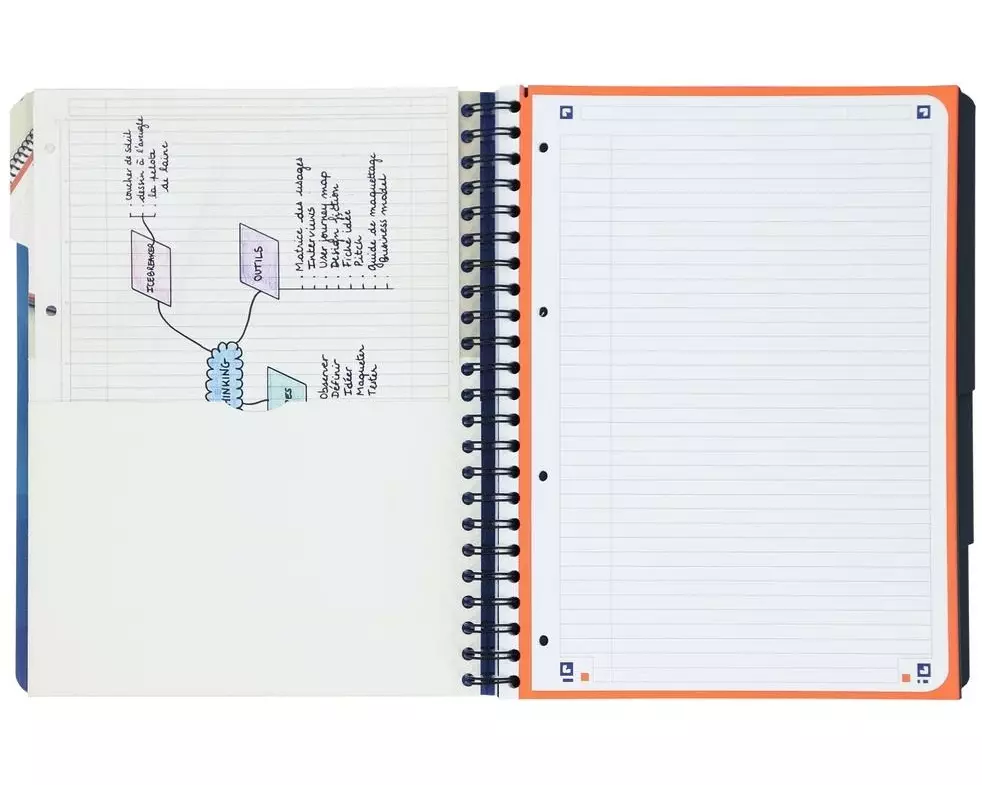 ICEBREAKER
. coucher de soleil
. dessin à l'aveugle
. la pelote
de laine
HINKING
OUTILS
. Matrice des usages
. Interviews
. User journey map
. Design fiction
. Fiche idée
. Pitch
. Guide de maquettage
. Business model
ES
Observer
Définir
Idéer
Maqueter
Tester